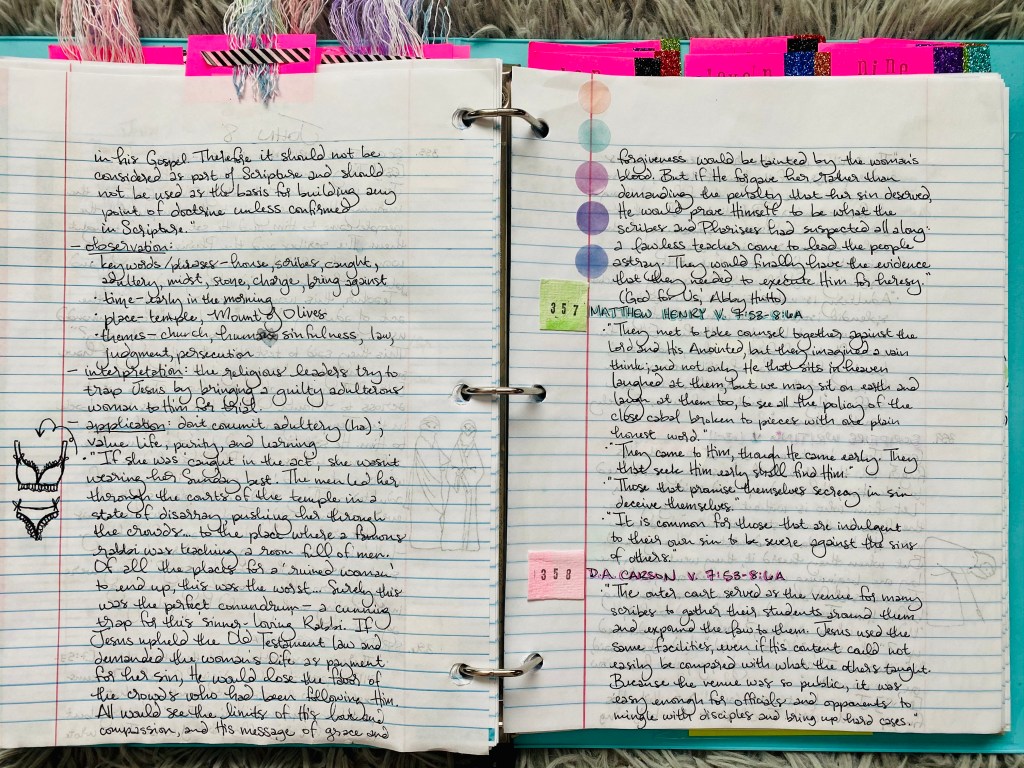 in his Gospel. Therefore it should not be
considered as part of Scripture and should
not be used as the basis for building any
point of doctrine unless confirmed
in Scripture."
- observation:
· keywords/phrases - house, scribes, caught,
adultery, midst, stone, charge, bring against
· time - early in the morning
· place - temple, Mount of Olives
· themes - church, human sinfulness, law,
judgment, persecution
- interpretation: the religious leaders try to
trap Jesus by bringing a guilty adulterous
woman to Him for trial
- application: don't commit adultery (ha);
value life, purity, and learning
· "If she was caught in the act, she wasn't
wearing her Sunday best. The men led her
through the courts of the temple in a
state of disarray, pushing her through
the crowds... to the place where a famous
rabbi was teaching a room full of men.
Of all the places for a 'ruined woman'
to end up, this was the worst... Surely this
was the perfect conundrum - a cunning
trap for this sinner-loving Rabbi. If
Jesus upheld the Old Testament law and
demanded the woman's life as payment
for her sin, He would lose the favor of
the crowds who had been following Him.
All would see the limits of His
compassion, and His message of grace and
nine
forgiveness would be tainted by the woman's
blood. But if He forgave her rather than
demanding the penalty that her sin deserved,
He would prove Himself to be what the
scribes and Pharisees had suspected all along:
a lawless teacher come to lead the people
astray. They would finally have the evidence
that they needed to execute Him for heresy."
('God for Us', Abby Hutto)
357 MATTHEW HENRY V. 7:53-8:6A
· "They met to take counsel together against the
Lord and His Anointed, but they imagined a vain
thing; and not only He that sits in heaven
laughed at them, but we may sit on earth and
laugh at them too, to see all the policy of the
close cabal broken to pieces with one plain
honest word."
· "They came to Him, though He came early. They
that seek Him early shall find Him."
· "Those that promise themselves secrecy in sin
deceive themselves."
· "It is common for those that are indulgent
to their own sin to be severe against the sins
of others."
358 D.A. CARSON V. 7:53-8:6A
· "The outer court served as the venue for many
scribes to gather their students around them
and expound the law to them. Jesus used the
same facilities, even if His content could not
easily be compared with what the others taught.
Because the venue was so public, it was
easy enough for officials and opponents to
mingle with disciples and bring up hard cases."